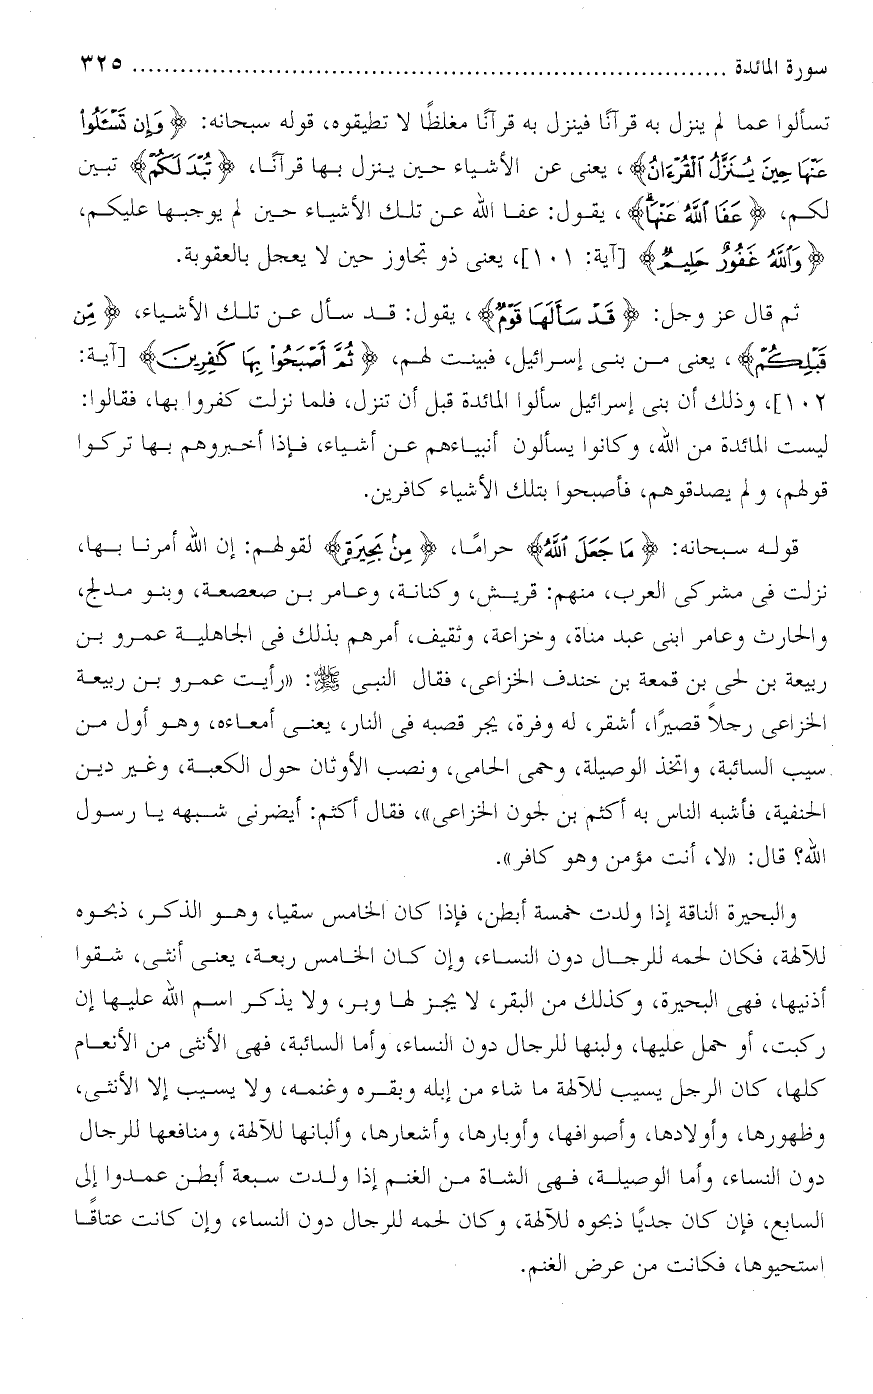 سورة المائدة ........................................................................ ٣٢٥
تسألوا عما لم ينزل به قرآنًا فينزل به قرآنًا مغلظًا لا تطيقوه، قوله سبحانه: ﴿وَإِن تَسْـَٔلُوا۟
عَنْهَا حِينَ يُنَزَّلُ ٱلْقُرْءَانُ﴾، يعنى عن الأشياء حين ينزل بها قرآنًا، ﴿تُبْدَ لَكُمْ﴾ تبين
لكم، ﴿عَفَا ٱللَّهُ عَنْهَا ۗ﴾، يقول: عفا الله عن تلك الأشياء حين لم يوجبها عليكم،
﴿وَٱللَّهُ غَفُورٌ حَلِيمٌ﴾ [آية: ١٠١]، يعنى ذو تجاوز حين لا يعجل بالعقوبة.
ثم قال عز وجل: ﴿قَدْ سَأَلَهَا قَوْمٌ﴾، يقول: قد سأل عن تلك الأشياء، ﴿مِّن
قَبْلِكُمْ﴾، يعنى من بنى إسرائيل، فبينت لهم، ﴿ثُمَّ أَصْبَحُوا۟ بِهَا كَٰفِرِينَ﴾ [آية:
١٠٢]، وذلك أن بنى إسرائيل سألوا المائدة قبل أن تنزل، فلما نزلت كفروا بها، فقالوا:
ليست المائدة من الله، وكانوا يسألون أنبياءهم عن أشياء، فإذا أخبروهم بها تركوا
قولهم، ولم يصدقوهم، فأصبحوا بتلك الأشياء كافرين.
قوله سبحانه: ﴿مَا جَعَلَ ٱللَّهُ﴾ حرامًا، ﴿مِنۢ بَحِيرَةٍ﴾ لقولهم: إن الله أمرنا بها،
نزلت فى مشركى العرب، منهم: قريش، وكنانة، وعامر بن صعصعة، وبنو مدلج،
والحارث وعامر ابنى عبد مناة، وخزاعة، وثقيف، أمرهم بذلك فى الجاهلية عمرو بن
ربيعة بن لحى بن قمعة بن خندف الخزاعى، فقال النبى ﷺ: «رأيت عمرو بن ربيعة
الخزاعى رجلاً قصيرًا، أشقر، له وفرة، يجر قصبه فى النار، يعنى أمعاءه، وهو أول من
سيب السائبة، واتخذ الوصيلة، وحمى الحامى، ونصب الأوثان حول الكعبة، وغير دين
الحنفية، فأشبه الناس به أكثم بن لجون الخزاعى»، فقال أكثم: أيضرنى شبهه يا رسول
الله؟ قال: «لا، أنت مؤمن وهو كافر».
والبحيرة الناقة إذا ولدت خمسة أبطن، فإذا كان الخامس سقيا، وهو الذكر، ذبحوه
للآلهة، فكان لحمه للرجال دون النساء، وإن كان الخامس ربعة، يعنى أنثى، شقوا
أذنيها، فهى البحيرة، وكذلك من البقر، لا يجز لها وبر، ولا يذكر اسم الله عليها إن
ركبت، أو حمل عليها، ولبنها للرجال دون النساء، وأما السائبة، فهى الأنثى من الأنعام
كلها، كان الرجل يسيب للآلهة ما شاء من إبله وبقره وغنمه، ولا يسيب إلا الأنثى،
وظهورها، وأولادها، وأصوافها، وأوبارها، وأشعارها، وألبانها للآلهة، ومنافعها للرجال
دون النساء، وأما الوصيلة، فهى الشاة من الغنم إذا ولدت سبعة أبطن عمدوا إلى
السابع، فإن كان جديًا ذبحوه للآلهة، وكان لحمه للرجال دون النساء، وإن كانت عتاقًا
استحيوها، فكانت من عرض الغنم.